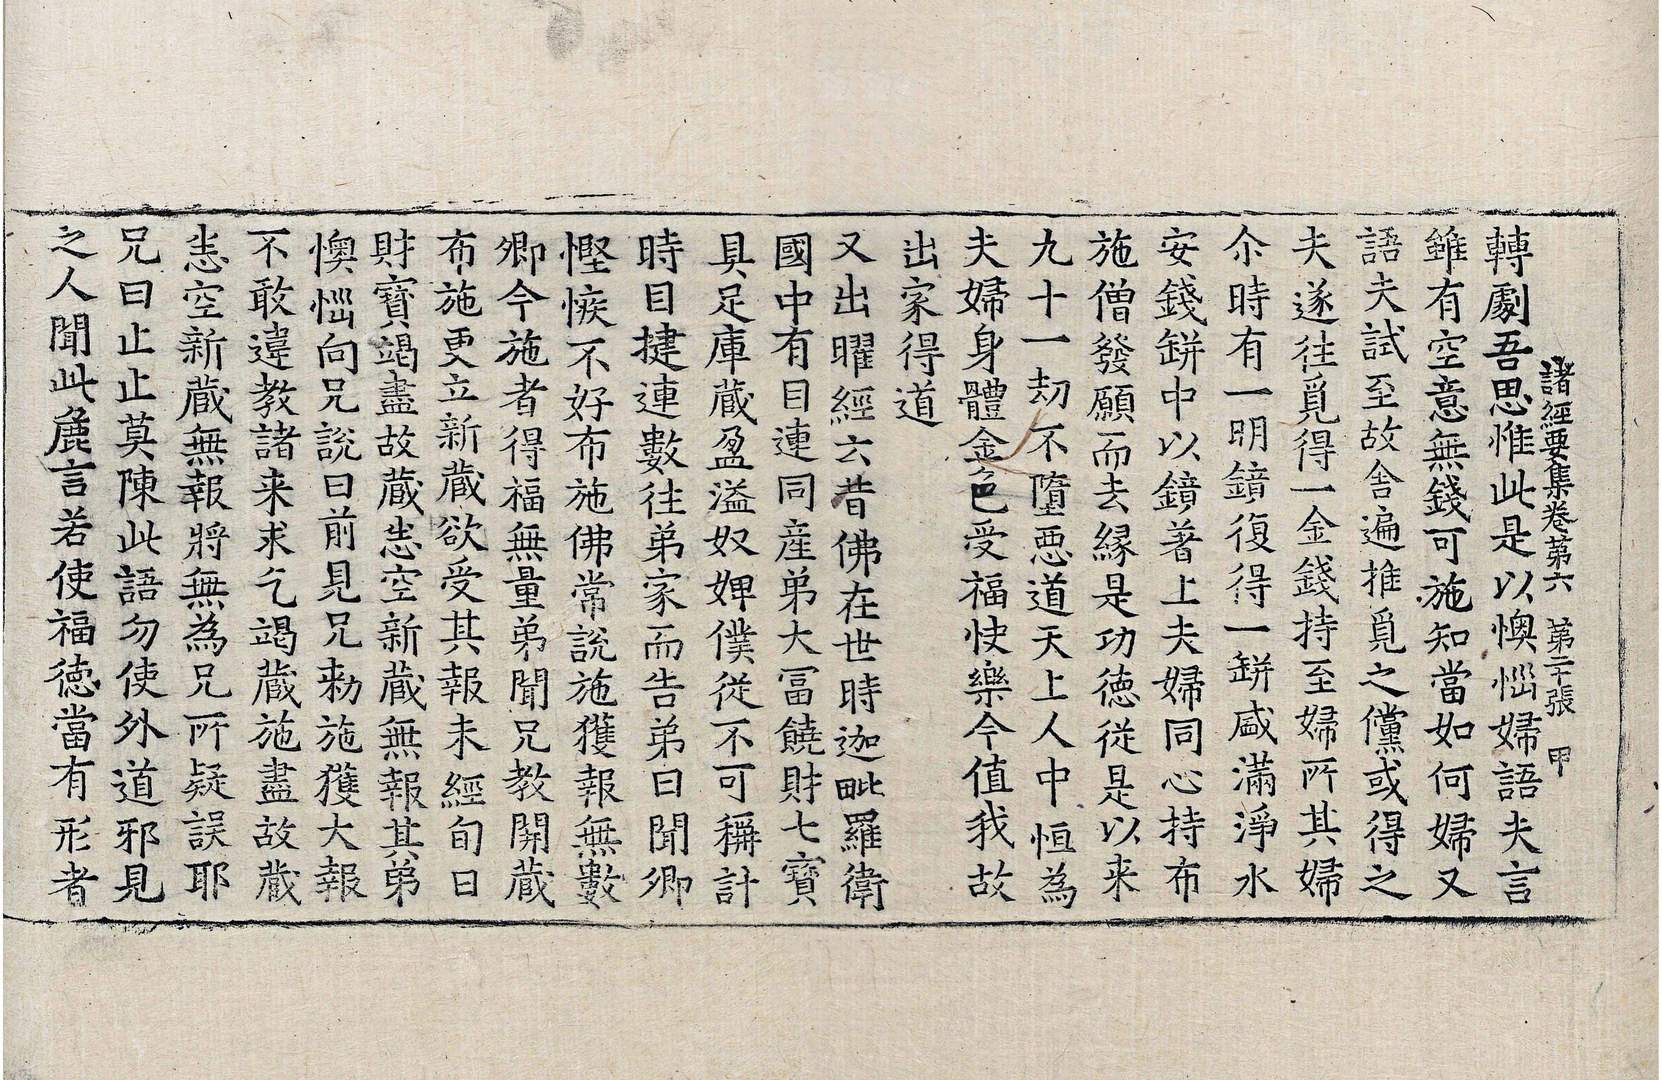 諸經要集卷第六 第二十張 甲
轉劇吾思惟此是以懊惱婦語夫言
雖有空意無錢可施知當如何婦又
語夫試至故舍遍推覓之儻或得之
夫遂往覓得一金錢持至婦所其婦
尒時有一明鏡復得一缾盛滿淨水
安錢缾中以鏡著上夫婦同心持布
施僧發願而去緣是功德從是以来
九十一劫不墮惡道天上人中恒為
夫婦身體金色受福快樂今值我故
出家得道
又出曜經云昔佛在世時迦毗羅衛
國中有目連同產弟大冨饒財七寶
具足庫藏盈溢奴婢僕從不可稱計
時目揵連數往弟家而告弟曰聞卿
慳悋不好布施佛常說施獲報無數
卿今施者得福無量弟聞兄教開藏
布施更立新藏欲受其報未經旬日
財寶竭盡故藏悉空新藏無報其弟
懊惱向兄說曰前見兄勑施獲大報
不敢違教諸来求乞竭藏施盡故藏
悉空新藏無報將無為兄所疑誤耶
兄曰止止莫陳此語勿使外道邪見
之人聞此麁言若使福德當有形者